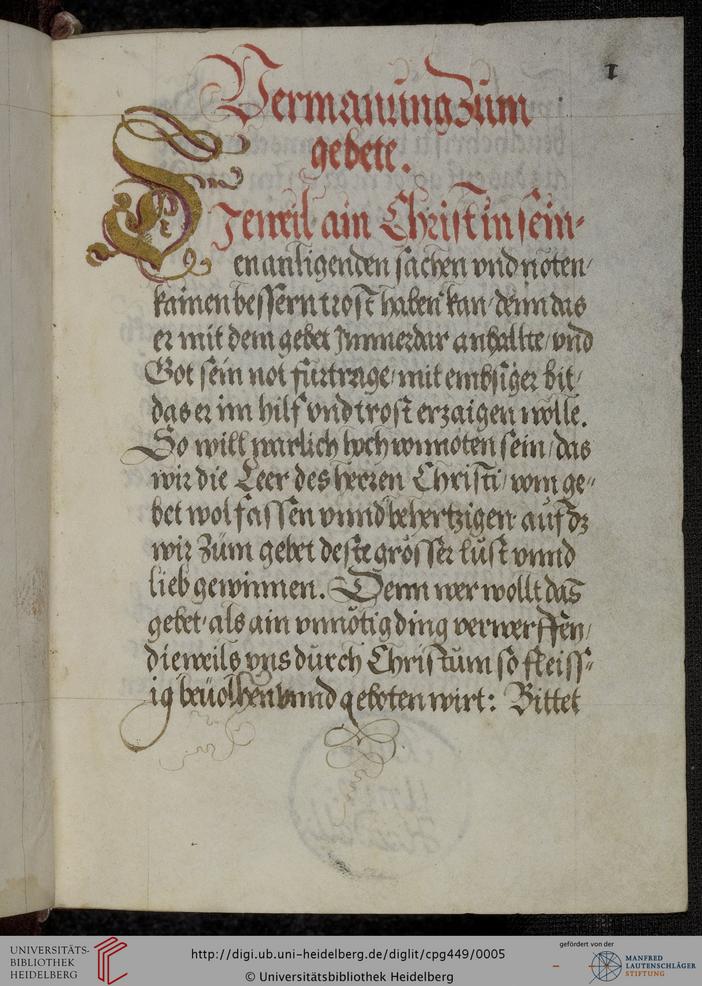 1
Vermanung zum
gebete.
DJeweil ain Christ in sein-
en anligenden sachen vnd nöten/
kainen bessern trost haben kan/ denn das
er mit dem gebet Jmmerdar anhallte/ vnd
Got sein not fürtrage/ mit embsiger bit/
das er im hilf vnd trost erzaigen wölle.
So will warlich hoch vonnöten sein/ das
wir die Leer des herren Christi/ vom ge-
bet wol fassen vnnd behertzigen auf dz
wir zům gebet deste grösser lust vnnd
lieb gewinnen. Denn wer wollt das
gebet/ als ain vnnötig ding verwerffen/
dieweils vns durch Christum so fleiss-
ig beuolhen vnnd geboten wirt: Bittet
UNIVERSITÄTS-
BIBLIOTHEK
HEIDELBERG
http://digi.ub.uni-heidelberg.de/diglit/cpg449/0005
© Universitätsbibliothek Heidelberg
gefördert von der
MANFRED
LAUTENSCHLÄGER
STIFTUNG